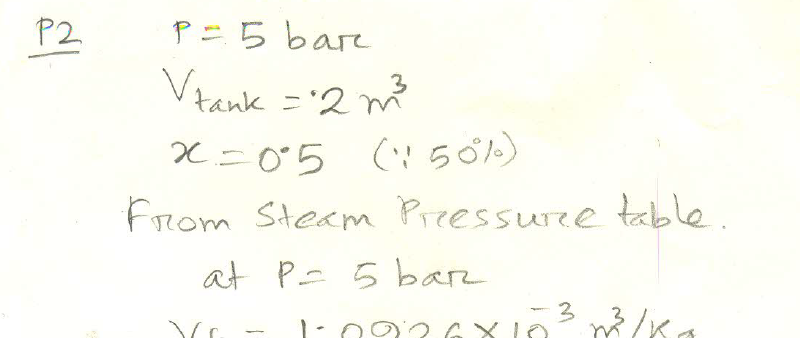 P2 P = 5 bar
V tank = ·2 m³
x = 0·5 (∵ 50%)
From Steam Pressure table.
at P = 5 bar
= 1·0926 × 10⁻³ m³/Kg